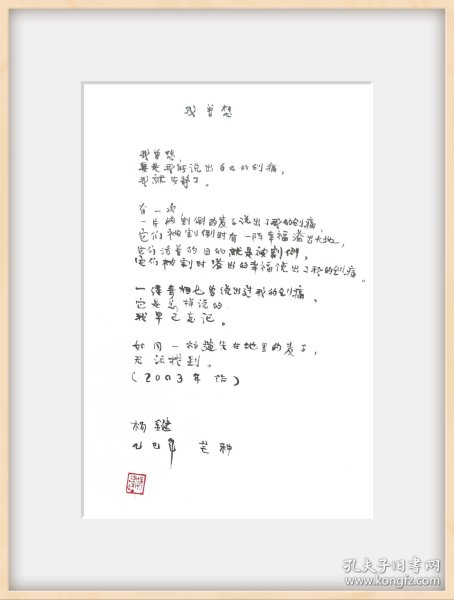 我曾想
我曾想，
要是我能说出自己的创痛，
我就安静了。
有一次，
一片被割倒的麦子说出了我的创痛，
它们被割倒时有一阵幸福溢出大地，
它们活着的目的就是被割倒，
它们被割时溢出的幸福说出了我的创痛。
一缕青烟也曾说出过我的创痛，
它是怎样说的
我早已忘记。
如同一粒遗失在地里的麦子，
无法找到。
（2003年作）
杨键
芒种
孔夫子旧书网
www.kongfz.com